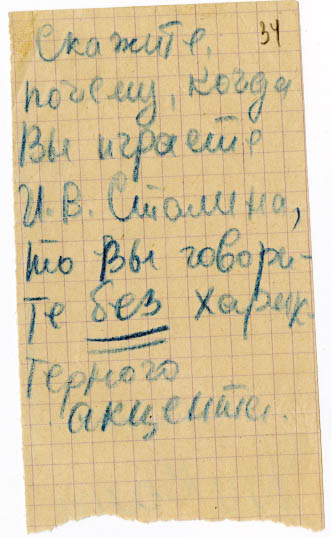 34
Скажите,
почему, когда
Вы играете
И.В. Сталина,
то Вы говори-
те без харак-
терного
акцента.